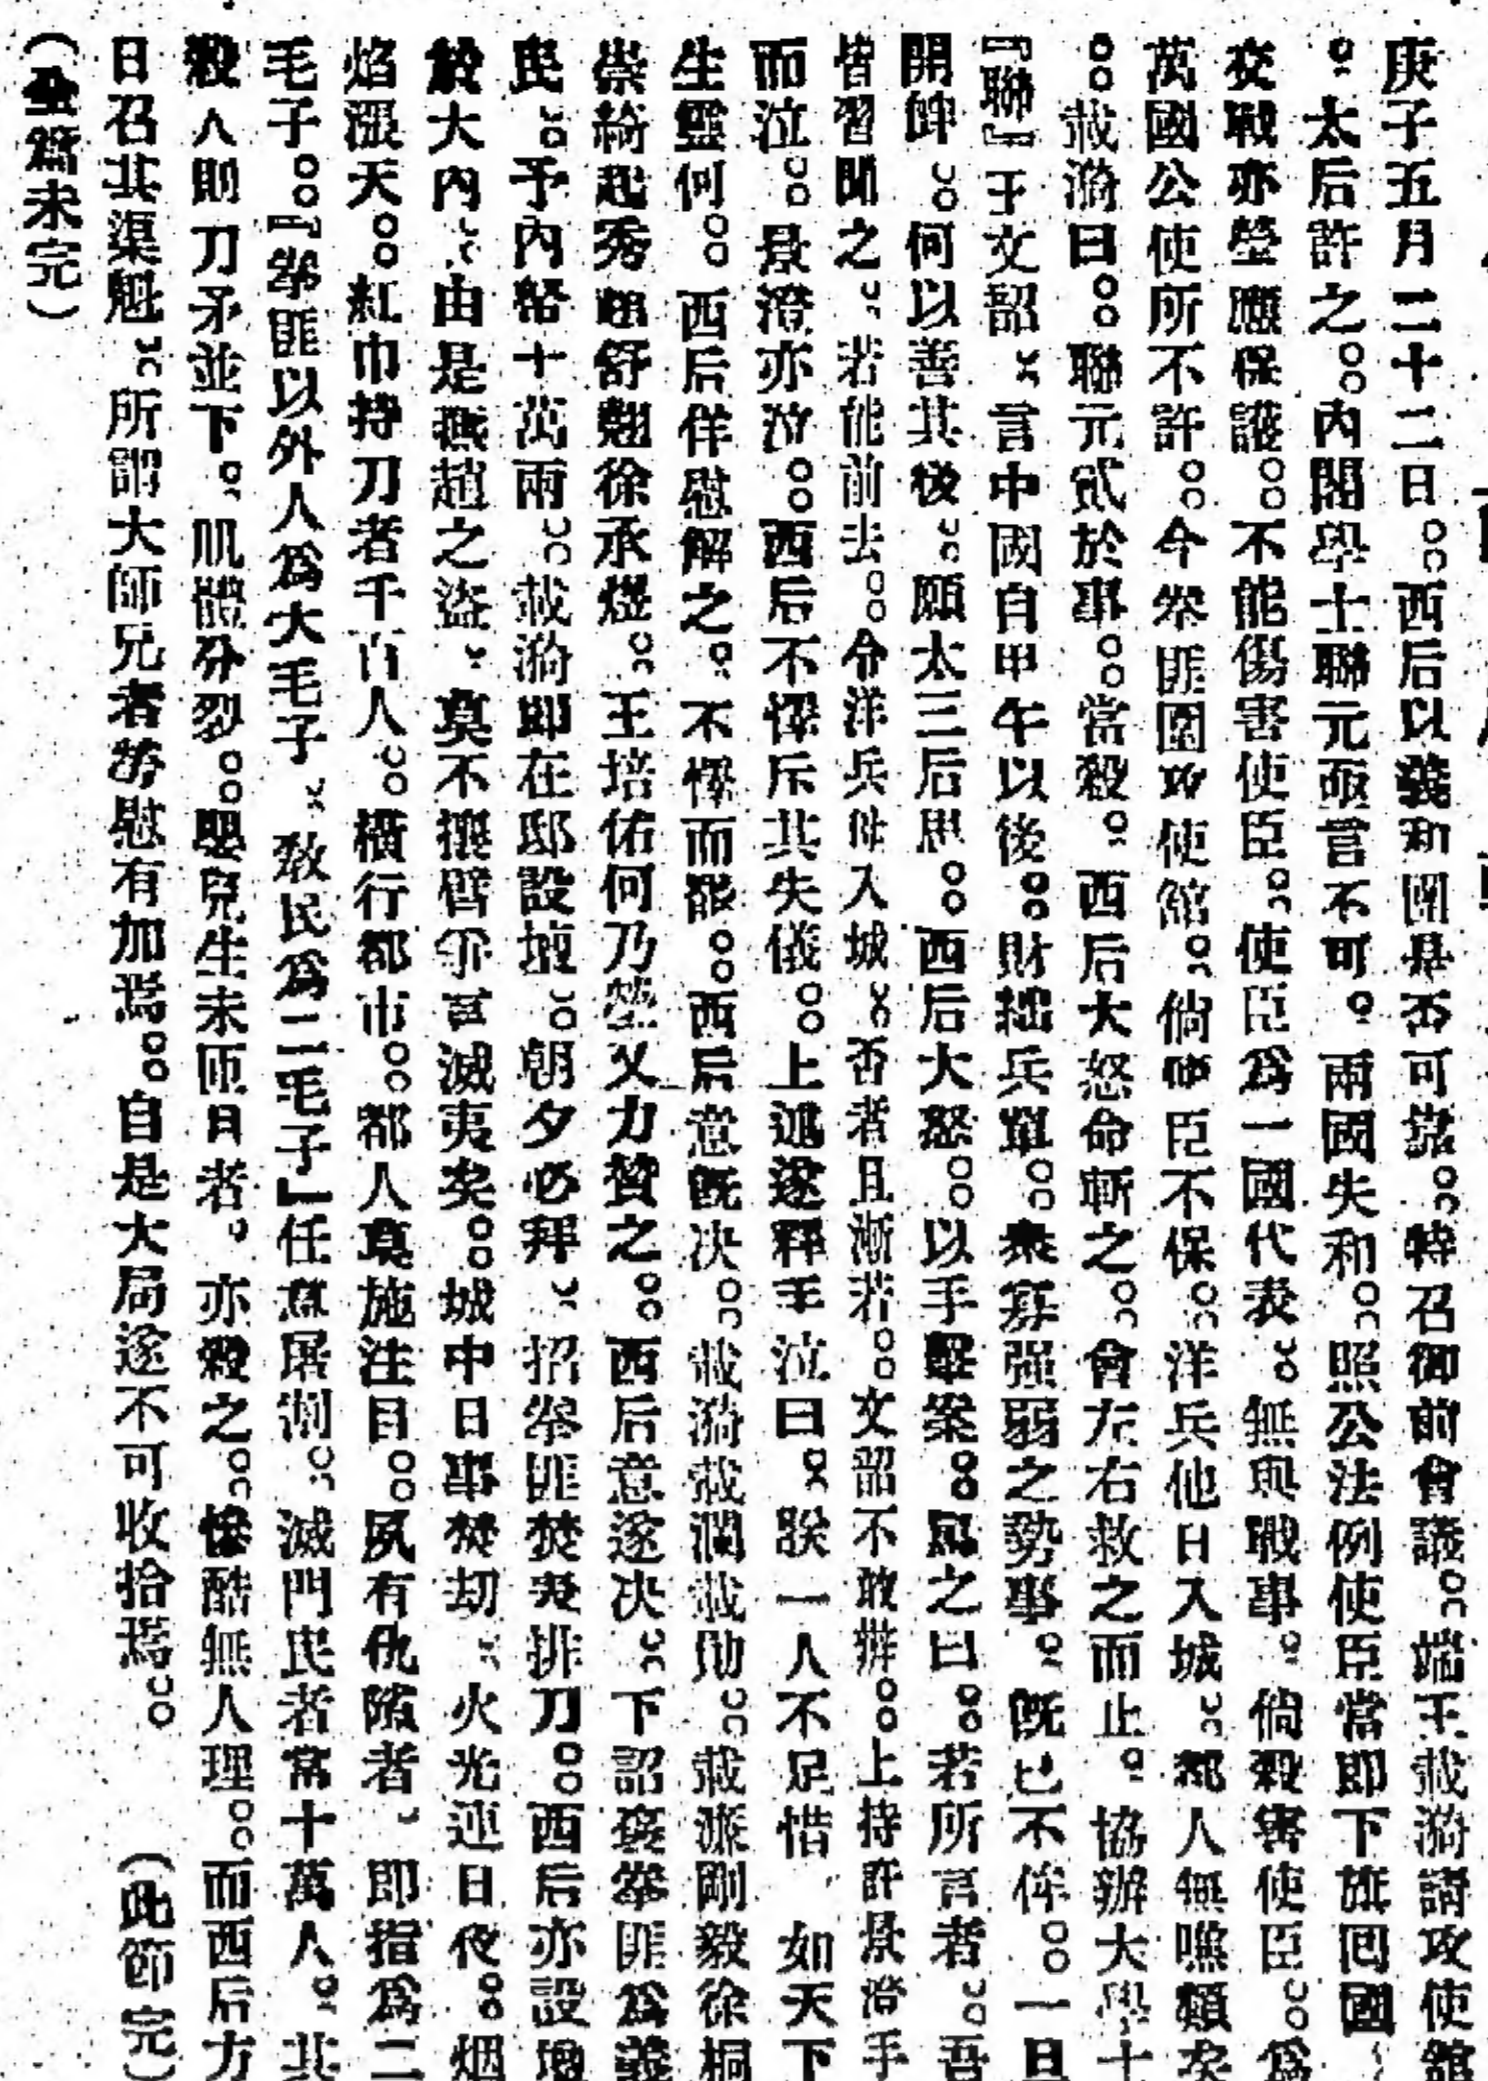 庚子五月二十二日。。西后以義和團是否可靠。。特召御前會議。。端王載漪請攻使館
。太后許之。。內閣學士聯元亟言不可。兩國失和。。照公法例使臣當即下旗囘國
交戰亦瑩應保護。。不能傷害使臣。。使臣爲一國代表。。無與戰事。倘殺害使臣。。爲
萬國公使所不許。。今拳匪圍攻使館。。倘使臣不保。。洋兵他日入城。。都人無噍類矣
。。載漪曰。。聯元貳於事。。當殺。西后大怒命斬之。。會左右救之而止。協辦大學士
『聯』王文韶。言中國自甲午以後。。財絀兵單。。衆寡强弱之勢事。旣已不侔。。一旦
開衅。。何以善其後。。願太三后思。。西后大怒。。以手擊案。。駡之曰。。若所言者。。吾
皆習聞之。若能前去。。令洋兵休入城。。否者且漸若。。文韶不敢辦。。上持許景澄手
而泣。。景澄亦泣。。西后不懌斥其失儀。。上遞遂釋手泣曰。。朕一人不足惜 如天下
生靈何。。西后佯慰解之。不懌而罷。。西后意旣決。。載漪載瀾載勛。。載濂剛毅徐桐
崇綺起秀趙舒翹徐承煜。。王培佑何乃瑩又力贊之。。西后意遂决。。下詔褒拳匪爲義
民。。予內帑十萬兩。。載漪即在邸設壇。。朝夕必拜。招拳匪焚香排刀。。西后亦設壇
於大內。。由是燕趙之盜。莫不攘臂爭言滅夷矣。。城中日事焚刧。火光連日夜。。烟
焰漲天。。紅巾持刀者千百人。。橫行都市。。都人莫施注目。。夙有仇隙者。即指爲二
毛子。。『拳匪以外人爲大毛子、敎民爲二毛子』任意屠割。。滅門民者常十萬人。其
殺人則刀矛並下。肌體分裂。。嬰兒生未匝日者。亦殺之。。慘酷無人理。。而西后方
日召其渠魁。。所謂大師兄者勞慰有加焉。。自是大局遂不可收拾焉。。 (此節完)
(全篇未完)